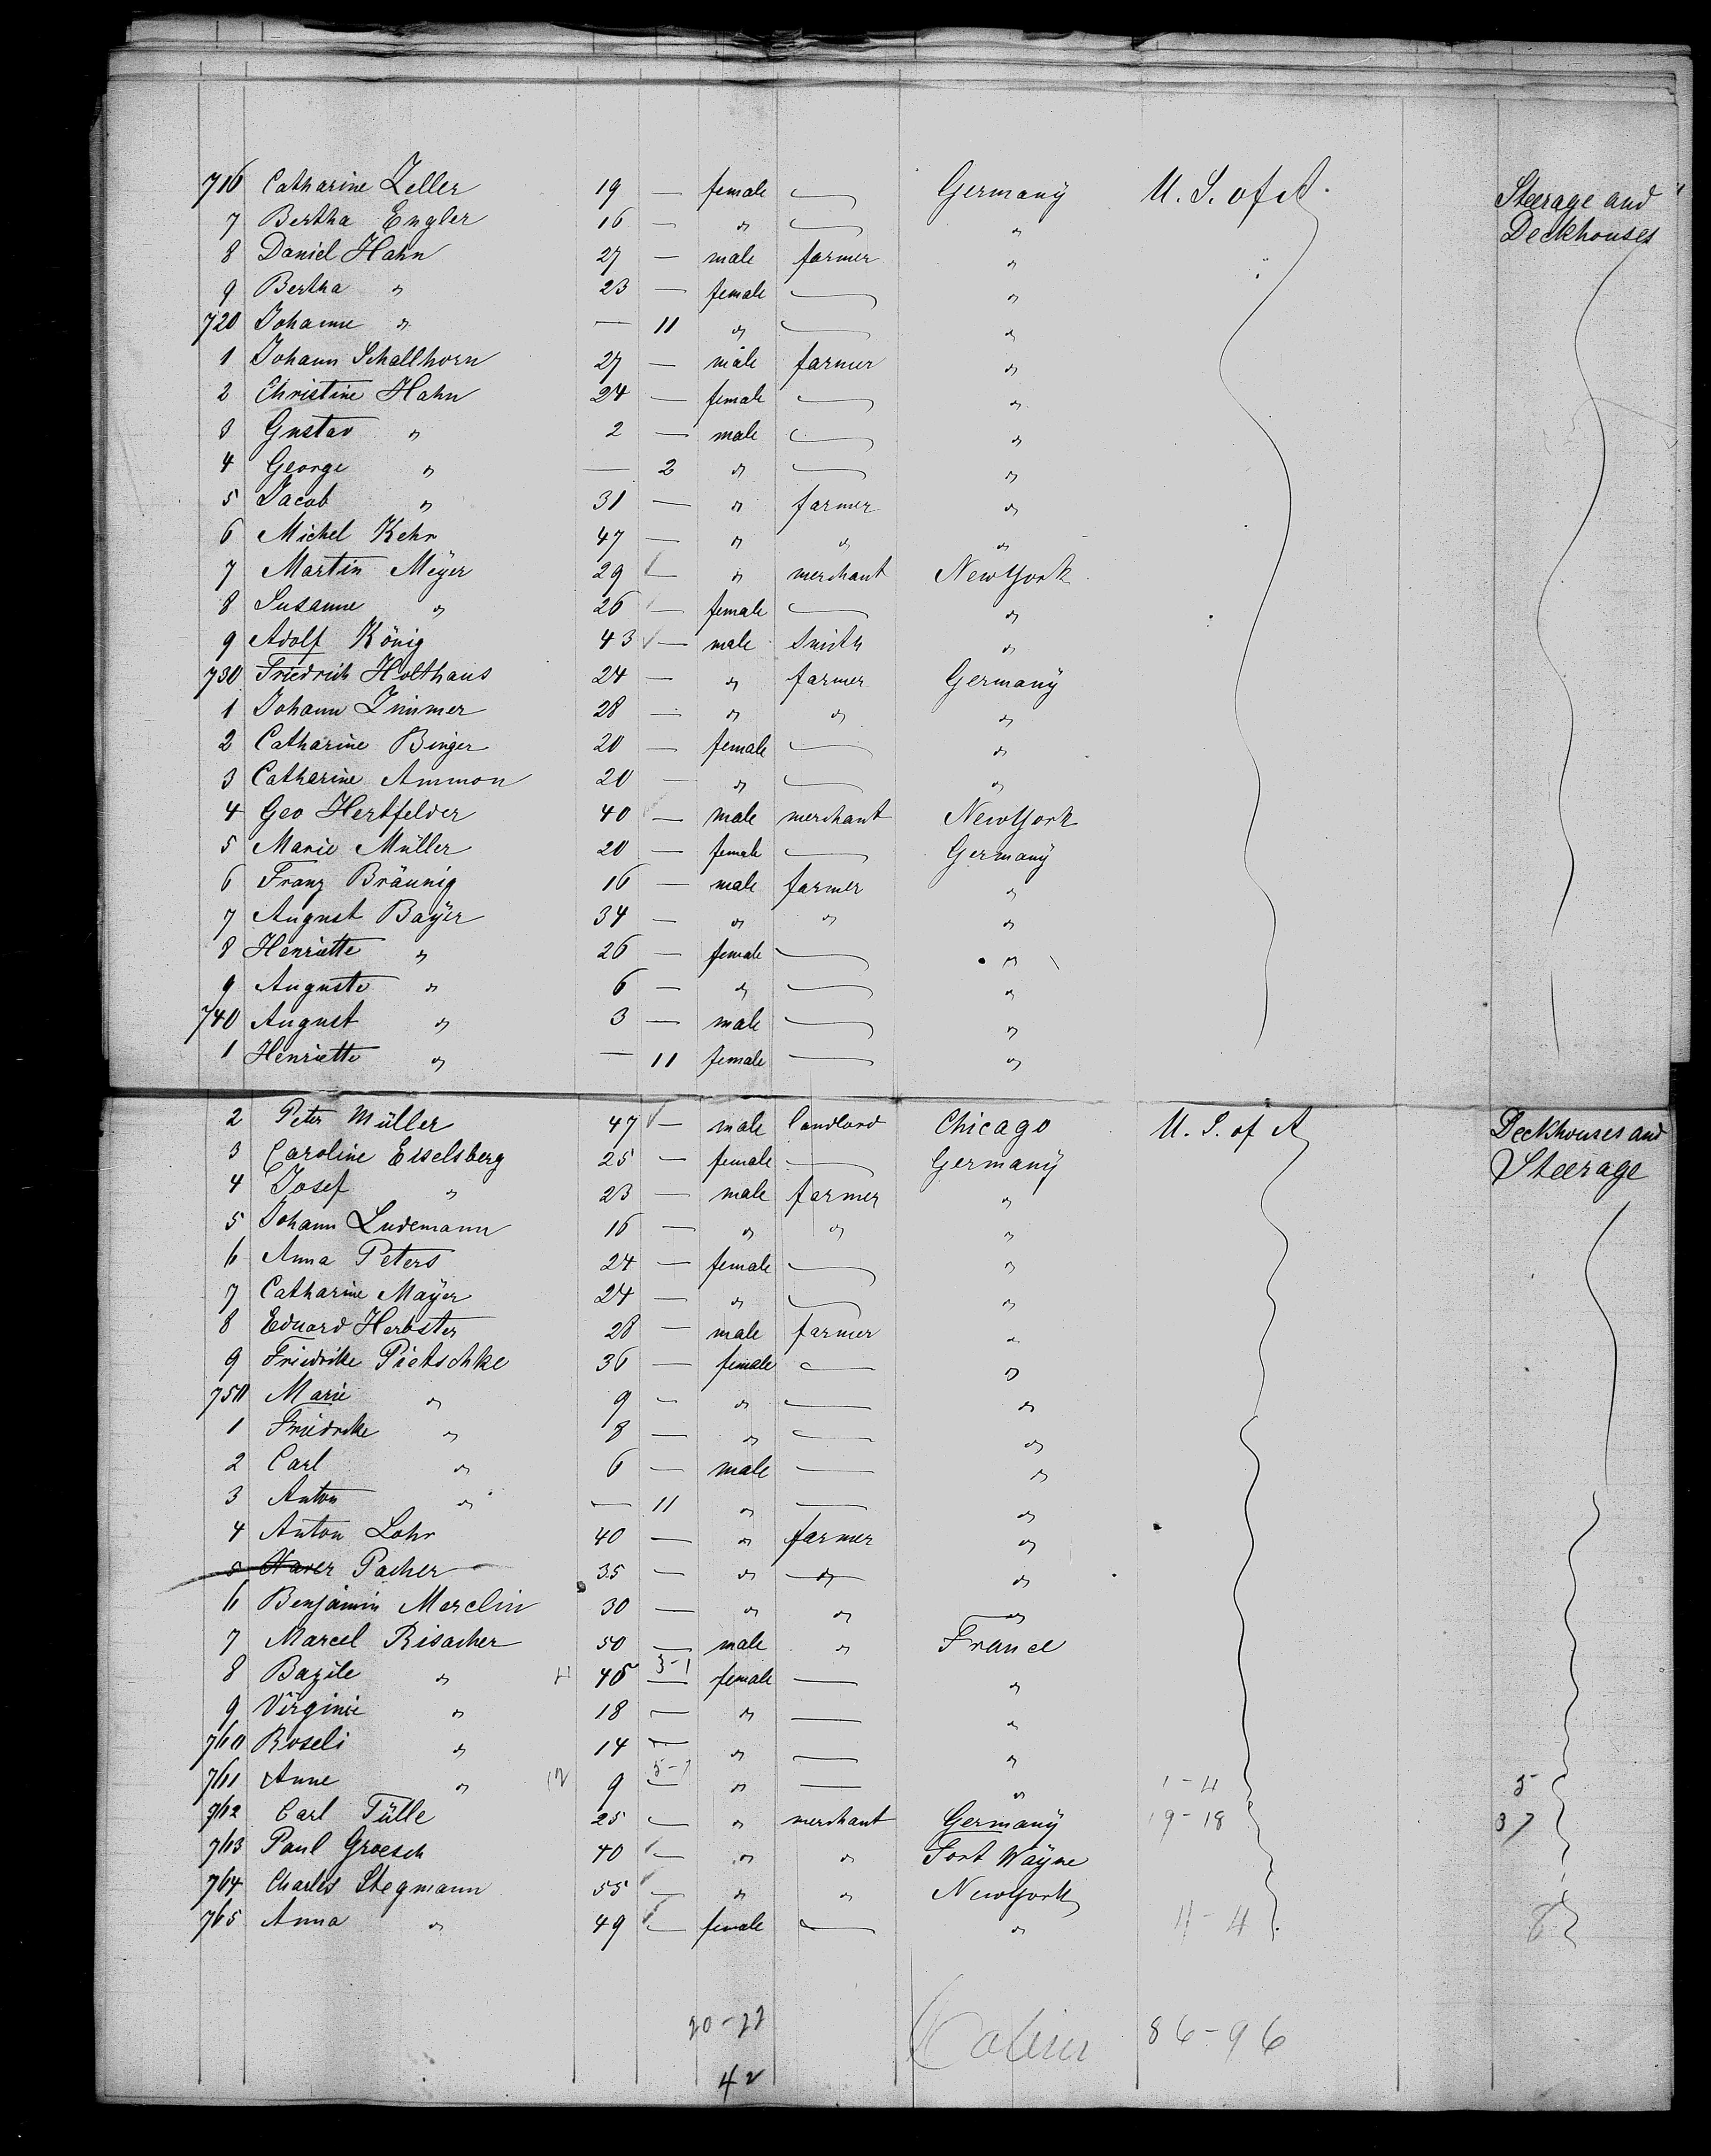 716 Catharine Zeller 19 — female — Germany U. S. of A. Steerage and
7 Bertha Engler 16 — " — " Deckhouses
8 Daniel Hahn 27 — male farmer "
9 Bertha " 23 — female — "
720 Johanne " — 11 " — "
1 Johann Schallhorn 27 — male farmer "
2 Christine Hahn 24 — female — "
3 Gustav " 2 — male — "
4 George " — 2 " — "
5 Jacob " 31 — " farmer "
6 Michel Kehr 47 — " " "
7 Martin Meyer 29 — " merchant NewYork
8 Susanne " 26 — female — "
9 Adolf König 43 — male Smith "
730 Friedrich Holthaus 24 — " farmer Germany
1 Johann Zimmer 28 — " " "
2 Catharine Binger 20 — female — "
3 Catharine Ammon 20 — " — "
4 Geo Hertfelder 40 — male merchant NewYork
5 Marie Müller 20 — female — Germany
6 Franz Bräunig 16 — male farmer "
7 August Bayer 34 — " " "
8 Henriette " 26 — female — "
9 Auguste " 6 — " — "
740 August " 3 — male — "
1 Henriette " — 11 female — "
2 Peter Müller 47 — male landlord Chicago U. S. of A Deckhouses and
3 Caroline Eiselsberg 25 — female — Germany Steerage
4 Josef " 23 — male farmer "
5 Johann Ludemann 16 — " " "
6 Anna Peters 24 — female — "
7 Catharine Mayer 24 — " — "
8 Eduard Herbster 28 — male farmer "
9 Friedrike Pietschke 36 — female — "
750 Marie " 9 — " — "
1 Friedrike " 8 — " — "
2 Carl " 6 — male — "
3 Anton " — 11 " — "
4 Anton Lohr 40 — " farmer "
5 Xaver Pacher 35 — " " "
6 Benjamin Marclin 30 — " " "
7 Marcel Risacher 50 — male " France
8 Bazile " 45 — female — "
9 Virginie " 18 — " — "
760 Roseli " 14 — " — "
761 Anne " 9 — " — " 1-4 5
762 Carl Tülle 25 — " merchant Germany 19-18 37
763 Paul Groesch 40 — " " Fort Wayne
764 Charles Stegmann 55 — " " NewYork
765 Anna " 49 — female — " 11-4 8
20-22 86-96
42